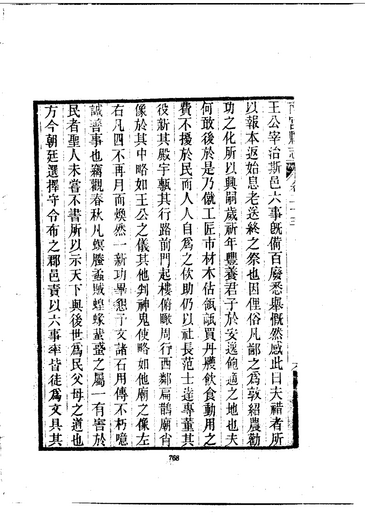 王公宰治斯邑六事旣備百廢悉舉慨然感此曰夫禮者所
以報本返始息老送終之祭也因俚俗凡鄙之爲敦紹農勸
功之化所以興嗣歲祈年豐養君子於安逸飽適之地也夫
何敢後於是乃僦工匠市材木估瓴甋買丹艧飲食動用之
費不擾於民而人人自爲之伙助仍以社長范士達專董其
役新其殿宇甃其行路前門起樓俯瞰周行西鄰扁鵲廟肖
像於其中略如王公之儀其他判神鬼使略如他廟之像左
右凡四不再月而煥然一新功畢懇子文諸石用傳不朽噫
誠善事也竊觀春秋凡螟螣蟊賊蝗蝝蜚盛之屬一有害於
民者聖人未嘗不書所以示天下與後世爲民父母之道也
方今朝廷選擇守令布之郡邑責以六事率皆徒爲文具其
768